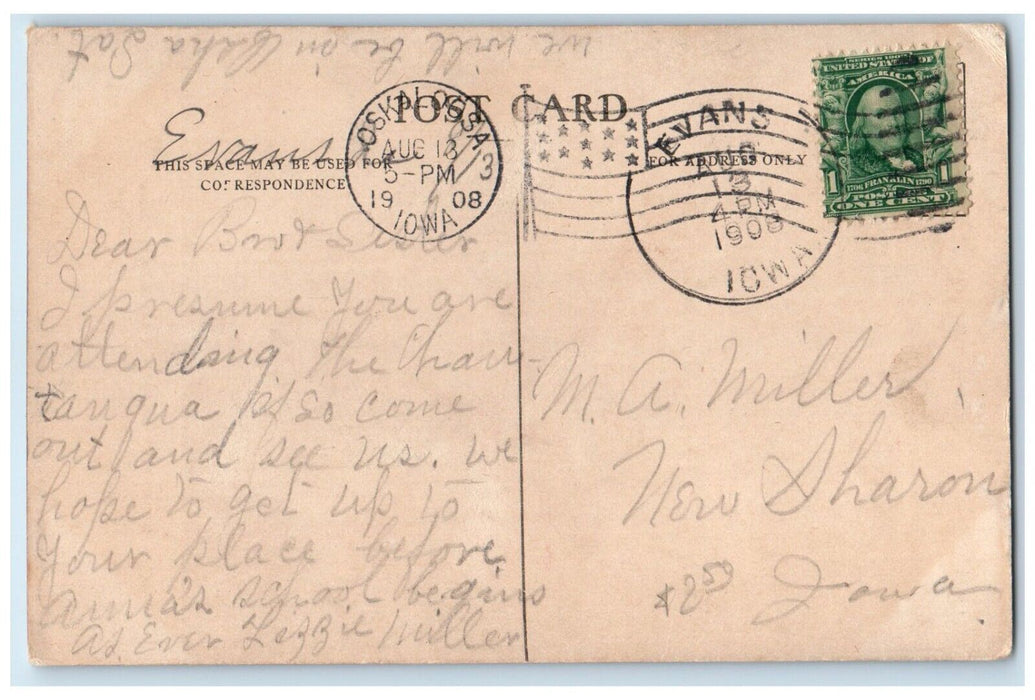 we will be on Sat.
POST CARD
THIS SPACE MAY BE USED FOR
CORRESPONDENCE
FOR ADDRESS ONLY
OSKALOOSA
AUG 13
5-PM
1908
IOWA
EVANS
AUG
13
4 PM
1908
IOWA
SERIES 1902
UNITED STATES OF
AMERICA
1 1706 FRANKLIN 1790 1
POSTAGE
ONE CENT
Evans 8/13
Dear Bro & Sister
I presume you are
attending the Chau-
tauqua if so come
out and see us. we
hope to get up to
your place before
school begins
As Ever Lizzie Miller
M. A. Miller,
New Sharon
Iowa
$2.50